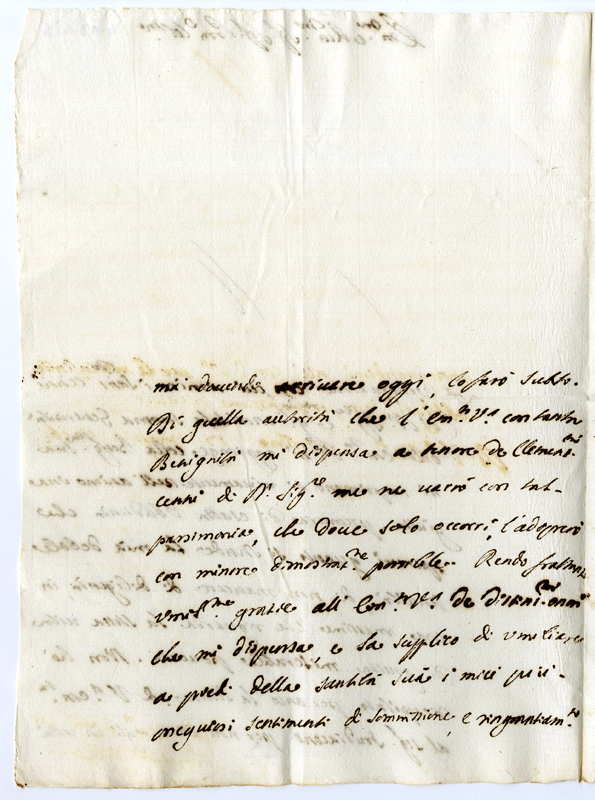 mi dovendo arrivare oggi, lo farò subito.
Di quella autorità che l'Em.za V.a con tanta
Benignità mi dispensa a tenore de Clementi.mi
cenni di N. Sig.re me ne varrò con tal
parsimonia, che dove solo occorri, l'adoprerò
con minore dimostrat.ne possibile. Rendo frattanto
umil.me gratie all'Em.za V.a de distinti.mi onori
che mi dispensa, e la supplico di umiliare
a piedi della Santità Sua i miei più i-
ossequiosi sentimenti di sommissione, e ringratiam.to